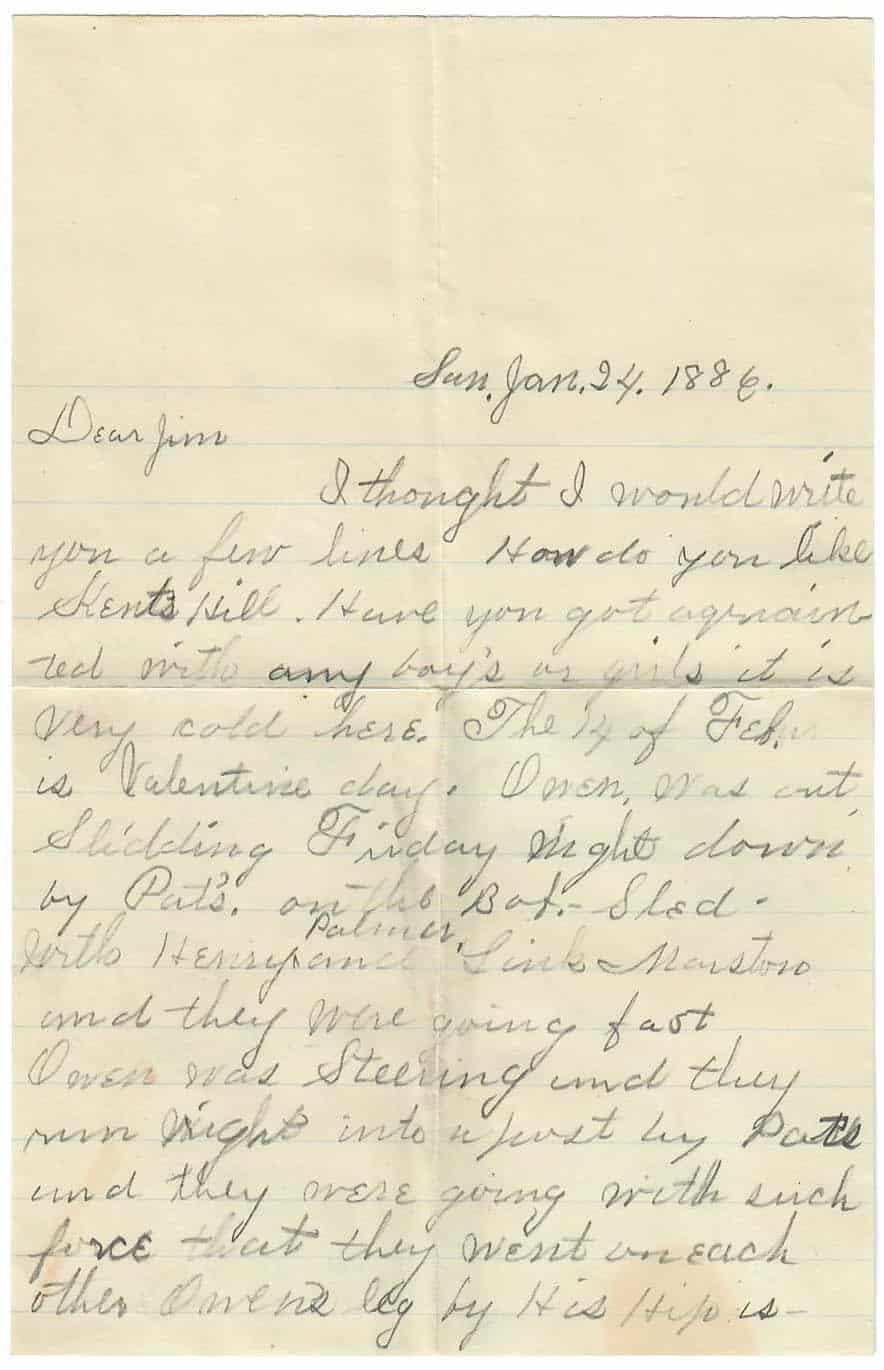 Sun. Jan. 24. 1886.
Dear Jim
I thought I would write
you a few lines How do you like
Kents Hill. Have you got aquain
ted with any boy's or girls it is
very cold here. The 14 of Feb.
is Valentine day. Owen, was out
Slidding Friday night down
by Pat's. on the Bob.- Sled -
Palmer,
with Henry and Link Marston
and they were going fast
Owen was Steering and they
run right into a post by Pats
and they were going with such
force that they went on each
other Owens leg by His Hip is-